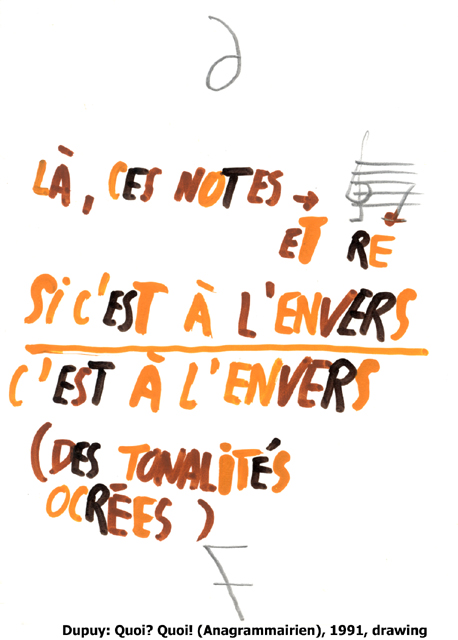 LÀ, CES NOTES →
ET RÉ
Si C'EST À L'ENVERS
C'EST À L'ENVERS
(DES TONALiTÉS
OCRÉES)
Dupuy: Quoi? Quoi! (Anagrammairien), 1991, drawing